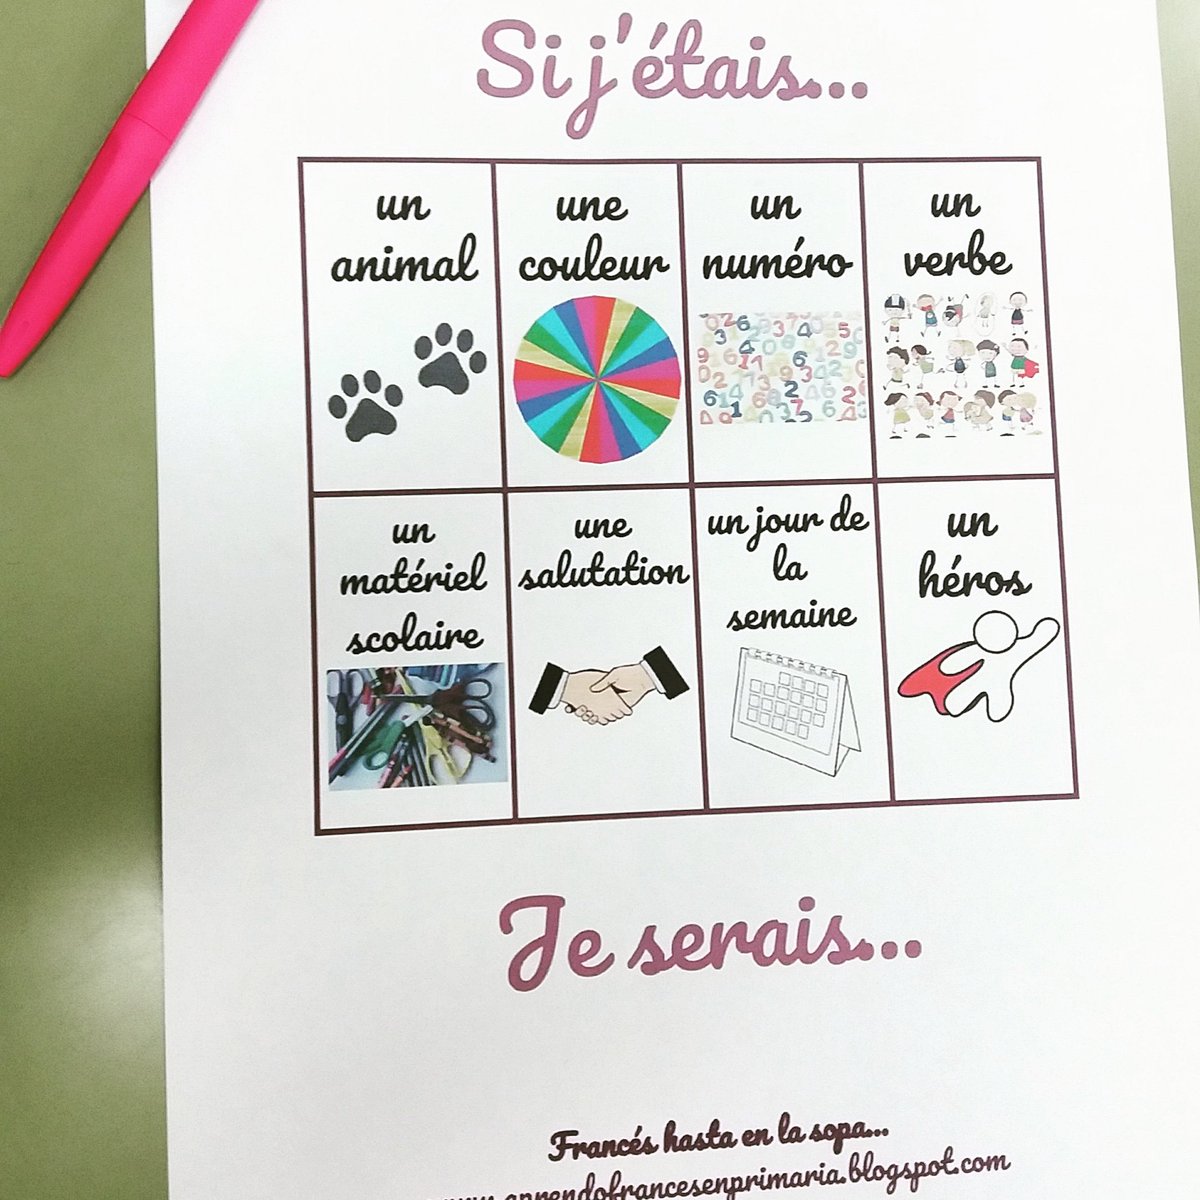 Si j'étais...
un
animal
une
couleur
un
numéro
un
verbe
un
matériel
scolaire
une
salutation
un jour de
la
semaine
un
héros
Je serais...
Francés hasta en la sopa...
www.aprendofrancesenprimaria.blogspot.com